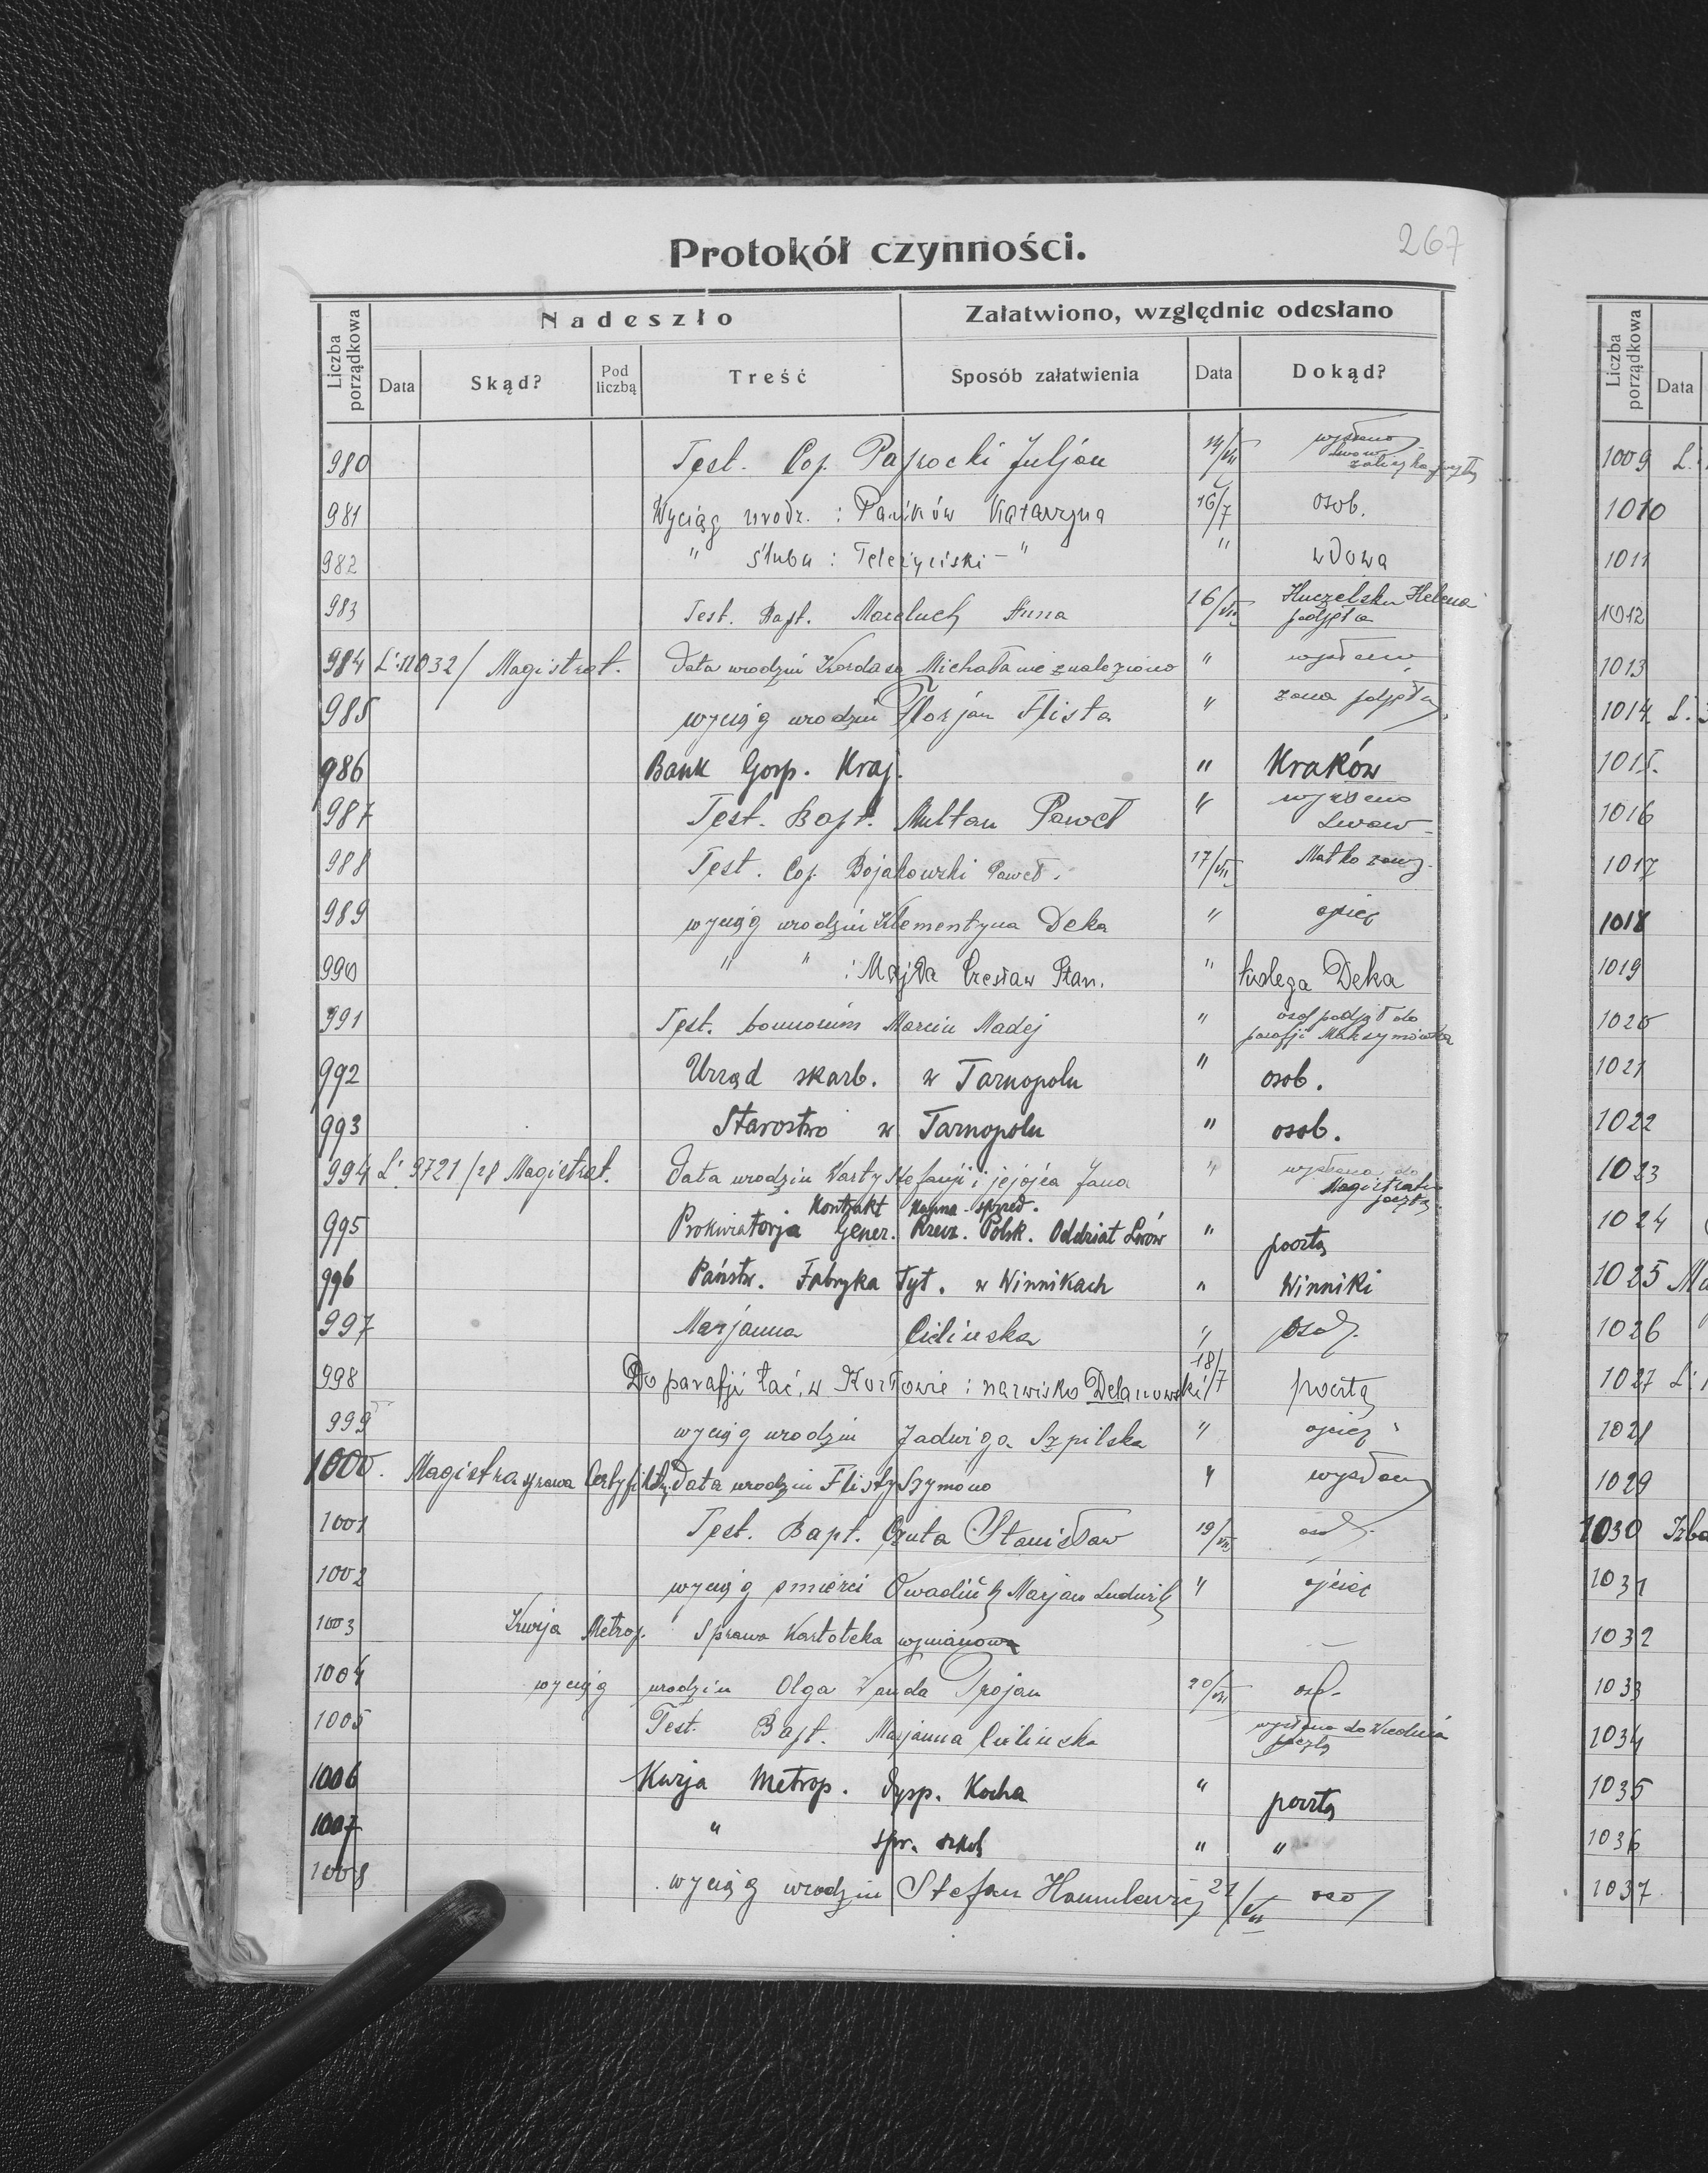 267
Protokół czynności.
Liczba porządkowa
Nadeszło
Załatwiono, względnie odesłano
Data Skąd? Pod liczbą Treść Sposób załatwienia Data Dokąd?
980 Test. Cop. Paprocki Juljan 14/VII wysłano Lwów
981 Wyciąg urodz. : Pańków Katarzyna 16/7 osob.
982 " ślubu : Teleżyciski - " " wdowa
983 Test. Bapt. Anna 16/VII Helena podjęła
984 L: 11032/ Magistrat. Data urodzin Kordasa Michała nie znaleziono " wysłano
985 wyciąg urodzin Florjan Flista " żona podjęła
986 Bank Gosp. Kraj. " Kraków
987 Test. Bapt. Multan Paweł " wysłano Lwow
988 Test. Cop. Bojakowski Paweł. 17/VII Matka
989 wyciąg urodzin Klementyna Deka " ojciec
990 " " : Majda Czesław Stan. " kolega Deka
991 Test. bannorum Marcin Madej " osob podjął do parafji Maksymówka
992 Urząd skarb. w Tarnopolu " osob.
993 Starostwo w Tarnopolu " osob.
994 L: 9721/28 Magistrat. Data urodzin Warty Stefanji i jej ojca Jana " wysłano do Magistratu pocztą
Kontrakt kupna-sprzed.
995 Prokuratorja Gener. Rzecz. Polsk. Oddział Lwów " pocztą
996 Państw. Fabryka Tyt. w Winnikach " Winniki
997 Marjanna Cielinska " osob.
998 Do parafji łać. w Kozłowie : nazwisko Delanowski 18/7 pocztą
999 wyciąg urodzin Jadwiga Szpilska " ojciec
1000. Magistra sprawa Data urodzin Flisty Szymona " wysłano
1001 Test. Bapt. Czuta Stanisław 19/VII osob.
1002 wyciąg śmierci Marjan Ludwik " ojciec
1003 Kurja Metrop. Sprawa Kartoteka wymianowa —
1004 wyciąg urodzin Olga Wanda Trojan 20/VII osob.
1005 Test. Bapt. Marjanna Cielinska wysłano do Wiednia pocztą
1006 Kurja Metrop. dysp. Kocha " pocztą
1007 " spr. szkol " "
1008 wyciąg urodzin Stefan 21/VII osob
Liczba porządkowa
Data
1009 L.
1010
1011
1012
1013
1014 L.
1015.
1016
1017
1018
1019
1020
1021
1022
1023
1024
1025 Ma
1026
1027 L:
1028
1029
1030 Izba
1031
1032
1033
1034
1035
1036
1037